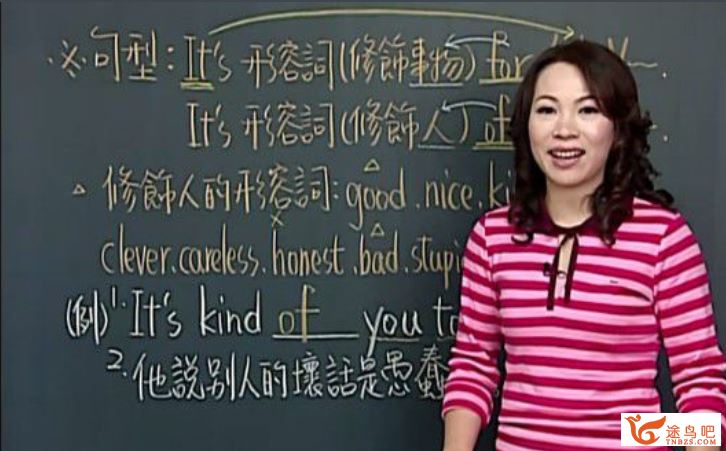 ※句型：It's 形容詞(修飾事物) for
It's 形容詞(修飾人) of
△修飾人的形容詞：good.nice.
clever.careless.honest.bad.
(例)1.It's kind of you
2.他說別人的壞話是愚蠢
途鸟吧
TNBZS.COM